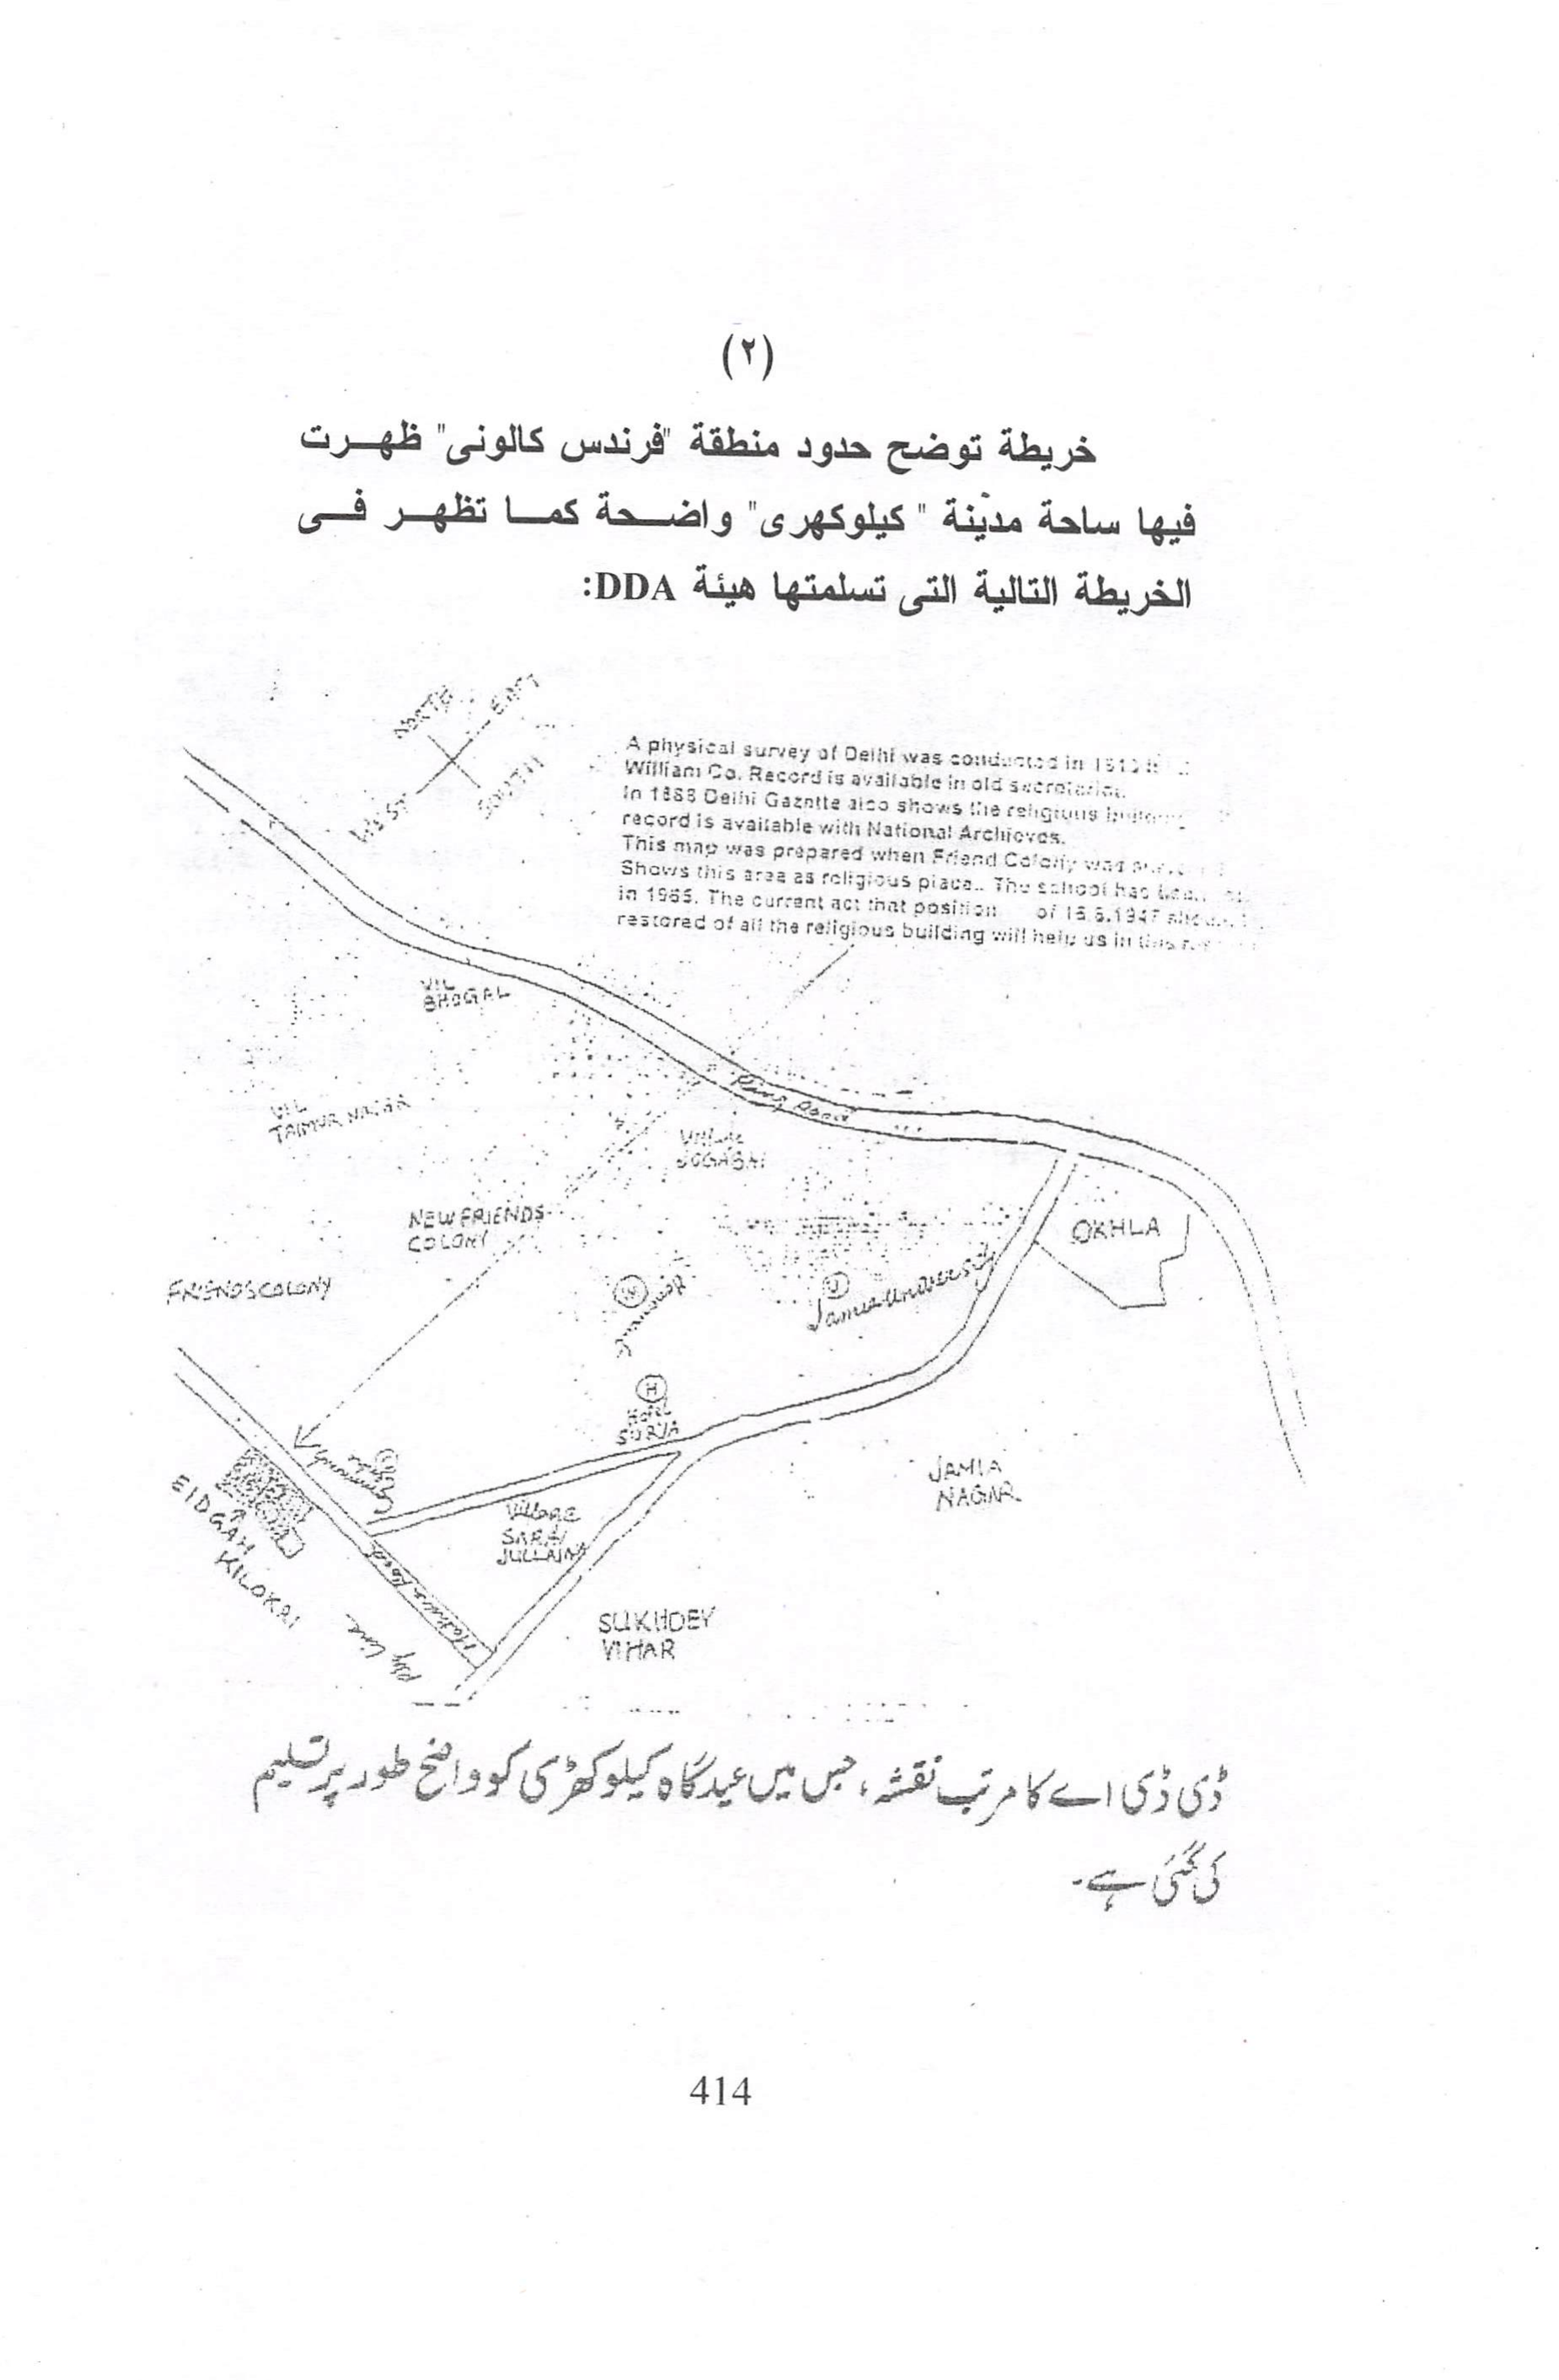 (٢)
خريطة توضح حدود منطقة "فرندس كالونى" ظهرت
فيها ساحة مدينة " كيلوكهرى" واضحة كما تظهر فى
الخريطة التالية التى تسلمتها هيئة DDA:
NORTH
EAST
WEST
SOUTH
A physical survey of Delhi was conducted in
William Co. Record is available in old secretariat.
In 1888 Delhi Gazette also shows the religious
record is available with National Archieves.
This map was prepared when Friend Colony was
Shows this area as religious place.. The school has
in 1965. The current act that position of 15.8.1947
restored of all the religious building will help us in this
VIL
BHOGAL
VIL
TAIMUR NAGAR
Ring Road
VILLAGE
JOGABAI
NEW FRIENDS
COLONY
OKHLA
FRIENDS COLONY
Jamia University
H
Hotel
SURYA
JAMIA
NAGAR
EIDGAH
KILOKRI
VILLAGE
SARAI
JULLAINA
Mathura Road
Rly Line
SUKHDEV
VIHAR
ڈی ڈی اے کا مرتب نقشہ، جس میں عیدگاہ کیلوکھڑی کو واضح طور پر تسلیم
کی گئی ہے۔
414